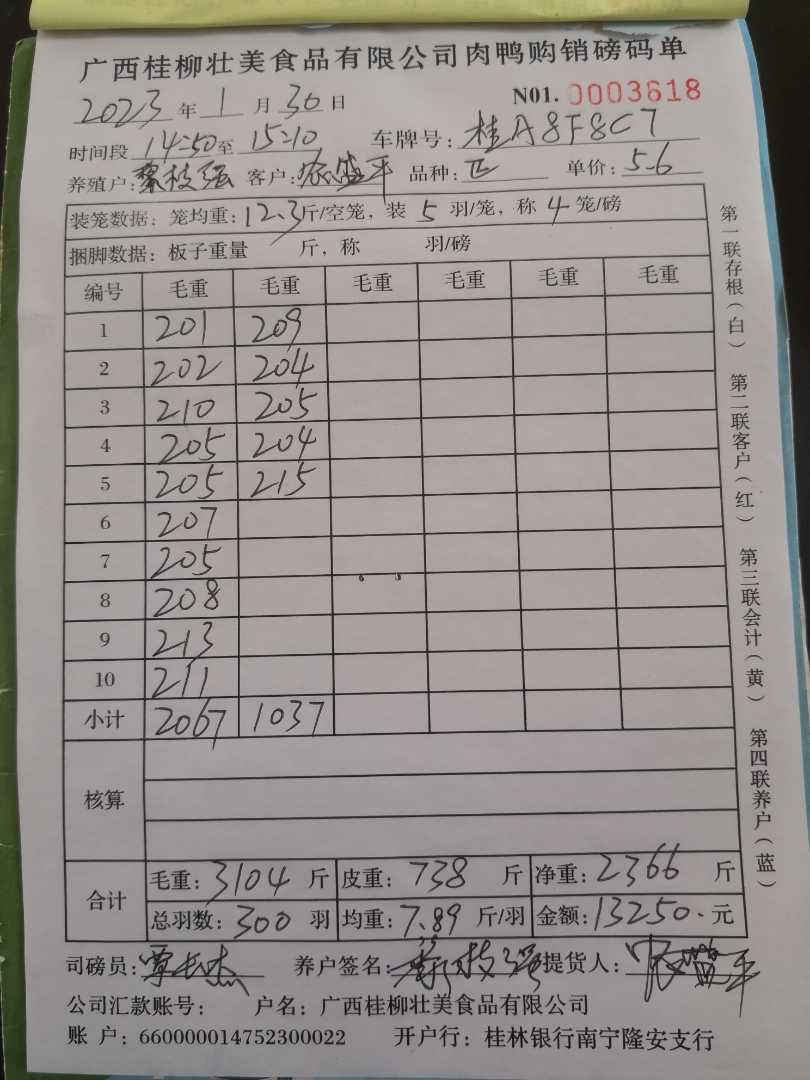 广西桂柳壮美食品有限公司肉鸭购销磅码单
2023年1月30日 N01. 0003618
时间段14:50至15:10 车牌号:桂A8F8C7
养殖户:覃枝强 客户:农盛平 品种: 单价:5.6
装笼数据: 笼均重:12.3斤/空笼, 装5羽/笼, 称4笼/磅
捆脚数据: 板子重量 斤, 称 羽/磅
编号 毛重 毛重 毛重 毛重 毛重 毛重
1 201 209
2 202 204
3 210 205
4 205 204
5 205 215
6 207
7 205
8 208
9 213
10 211
小计 2067 1037
核算
合计 毛重: 3104 斤 皮重: 738 斤 净重: 2366 斤
总羽数: 300 羽 均重: 7.89 斤/羽 金额: 13250. 元
司磅员: 覃 杰 养户签名: 覃枝强 提货人: 农盛平
公司汇款账号: 户名: 广西桂柳壮美食品有限公司
账 户: 660000014752300022 开户行: 桂林银行南宁隆安支行
第一联存根(白) 第二联客户(红) 第三联会计(黄) 第四联养户(蓝)